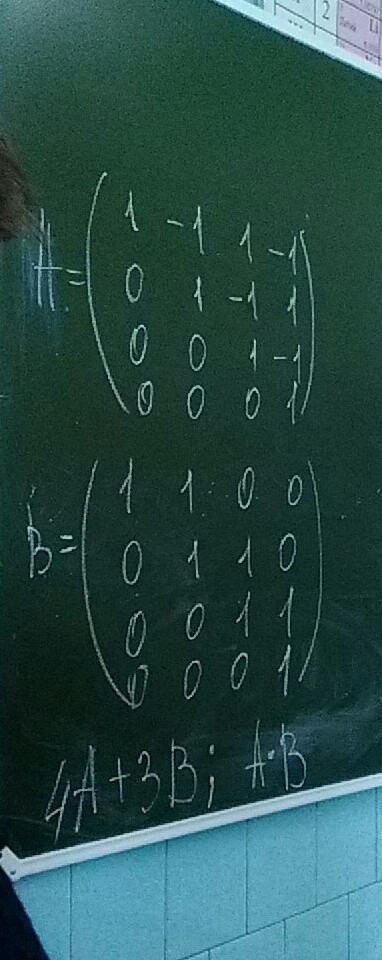 A = ( 1 -1 1 -1
0 1 -1 1
0 0 1 -1
0 0 0 1 )
B = ( 1 1 0 0
0 1 1 0
0 0 1 1
0 0 0 1 )
4A+3B; A·B